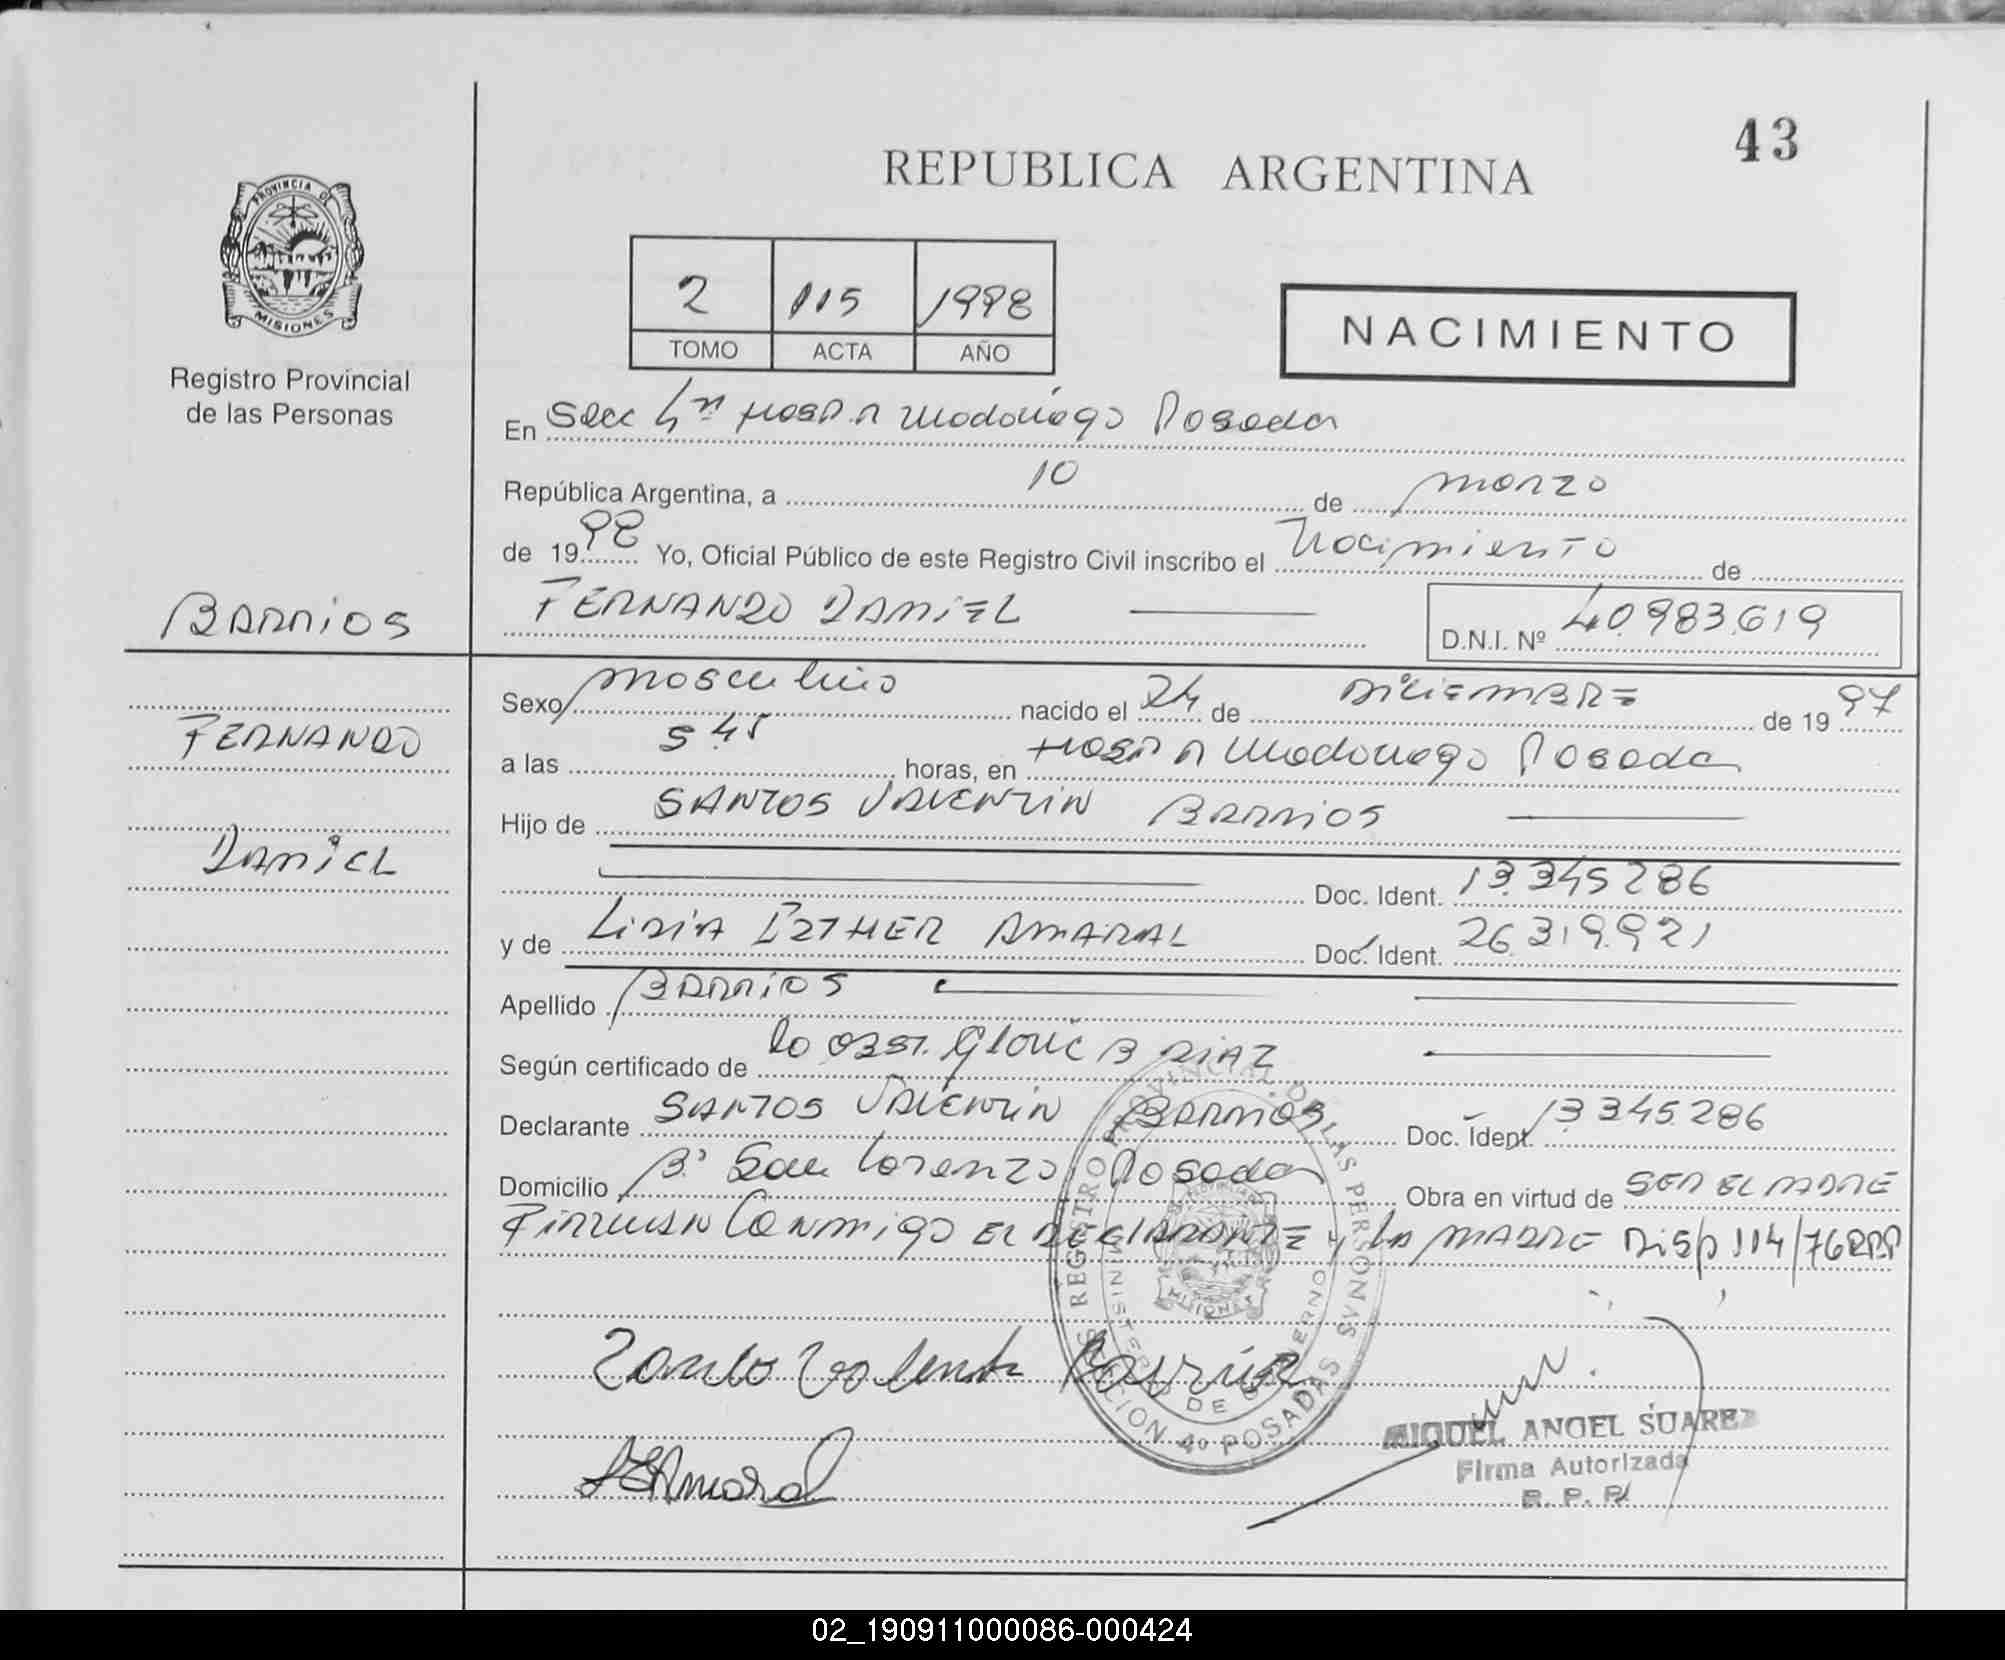 43
REPUBLICA ARGENTINA
PROVINCIA DE
MISIONES
Registro Provincial
de las Personas
2 115 1998
TOMO ACTA AÑO
NACIMIENTO
En Secc 4ª Hosp. R Madariaga Posadas
República Argentina, a 10 de marzo
de 1998 Yo, Oficial Público de este Registro Civil inscribo el Nacimiento de
FERNANDO DANIEL
D.N.I. Nº 40.983.619
BARRIOS
FERNANDO
DANIEL
Sexo masculino nacido el 24 de DICIEMBRE de 1997
a las 5 45 horas, en Hosp R Madariaga Posadas
Hijo de SANTOS VALENTIN BARRIOS
Doc. Ident. 13.345286
y de LIDIA ESTHER AMARAL Doc. Ident. 26.319.921
Apellido BARRIOS
Según certificado de la OBST. Gloria B DIAZ
Declarante SANTOS VALENTIN BARRIOS Doc. Ident. 13.345.286
Domicilio Bº San Lorenzo, Posadas Obra en virtud de SER EL PADRE
FIRMAN CONMIGO EL DECLARANTE y LA MADRE Disp 114/76 RPP
REGISTRO PROVINCIAL DE LAS PERSONAS
MINISTERIO DE GOBIERNO
SECCION 4º POSADAS
MISIONES
Santo Valentin Barrios
LEAmaral
MIGUEL ANGEL SUAREZ
Firma Autorizada
R. P. P.
02_190911000086-000424